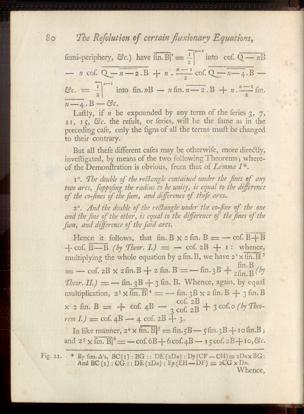 80 The Resolution of certain fluxionary Equations,
semi-periphery, &c.) have sin. B|ⁿ = 1/2|ⁿ⁻¹ into cos. Q − nB
− n cos. Q − n−2 . B + n . (n−1)/2 cos. Q − n−4 . B −
&c. = 1/2|ⁿ⁻¹ into sin. nB − n sin. n−2 . B + n . (n−1)/2 sin.
n−4 . B − &c.
Lastly, if n be expounded by any term of the series 3, 7,
11, 15, &c. the result, or series, will be the same as in the
preceding case, only the signs of all the terms must be changed
to their contrary.
But all these different cases may be otherwise, more directly,
investigated, by means of the two following Theorems; where-
of the Demonstration is obvious, from that of Lemma I*.
1°. The double of the rectangle contained under the sines of any
two arcs, supposing the radius to be unity, is equal to the difference
of the co-sines of the sum, and difference of those arcs.
2°. And the double of the rectangle under the co-sine of the one
and the sine of the other, is equal to the difference of the sines of the
sum, and difference of the said arcs.
Hence it follows, that sin. B × 2 sin. B = − cos. B+B
+ cos. B−B (by Theor. I.) = − cos. 2B + 1 : whence,
multiplying the whole equation by 2 sin. B, we have 2² × sin. B|³
= − cos. 2B × 2 sin. B + 2 sin. B = − sin. 3B + sin. B 2 sin. B (by
Theor. II.) = − sin. 3B + 3 sin. B. Whence, again, by equal
multiplication, 2³ × sin. B|⁴ = − sin. 3B × 2 sin. B + 3 sin. B
× 2 sin. B = + cos. 4B − cos. 2B 3 cos. 2B + 3 cos. 0 (by Theo-
rem I.) = cos. 4B − 4 cos. 2B + 3.
In like manner, 2⁴ × sin. B|⁵ = sin. 5B − 5 sin. 3B + 10 sin. B ;
and 2⁵ × sin. B|⁶ = − cos. 6B + 6 cos. 4B − 15 cos. 2B + 10, &c.
Fig. 22. * By sim. Δ's, BC (1) : BG :: DE (2Dn) : Dp (CF − CH) = 2Dn × BG :
And BC (1) : CG :: DE (2Dn) : Ep (EH − DF) = 2CG × Dn.
Whence,